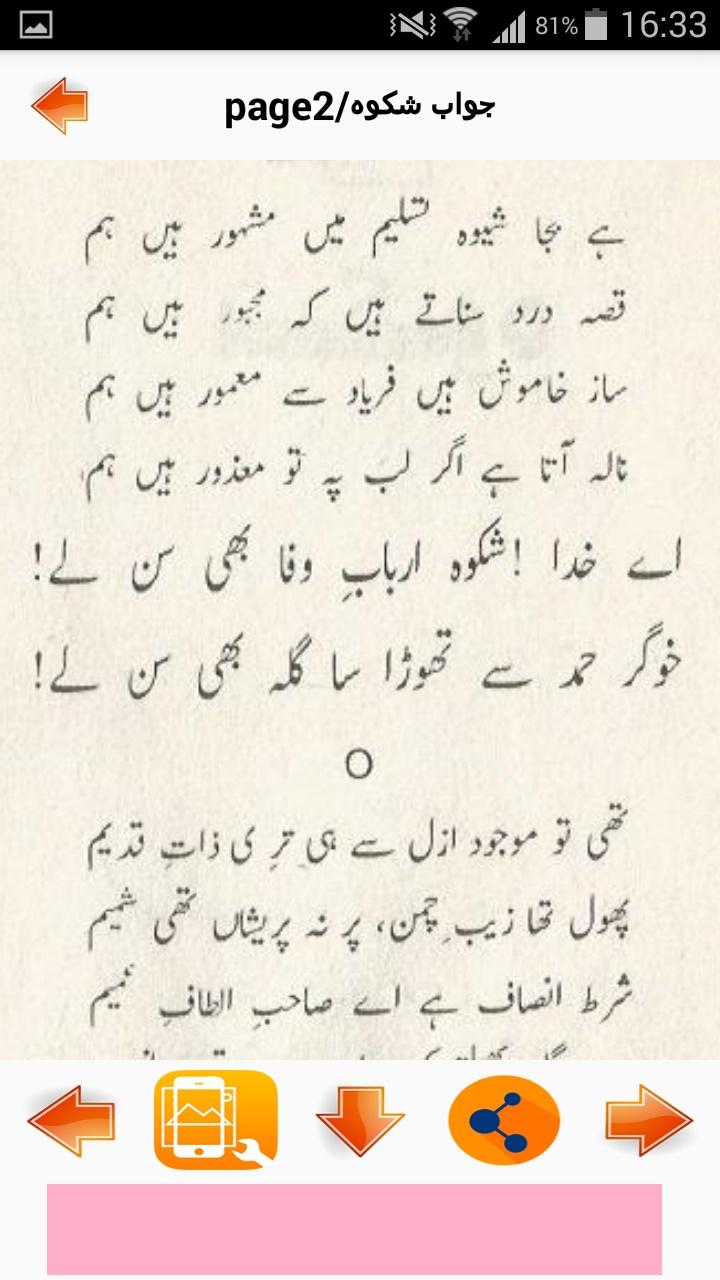 81% 16:33
page2/جواب شکوہ
ہے بجا شیوہ تسلیم میں مشہور ہیں ہم
قصہ درد سناتے ہیں کہ مجبور ہیں ہم
ساز خاموش ہیں فریاد سے معمور ہیں ہم
نالہ آتا ہے اگر لب پہ تو معذور ہیں ہم
اے خدا !شکوہ اربابِ وفا بھی سن لے!
خوگر حمد سے تھوڑا سا گلہ بھی سن لے!
O
تھی تو موجود ازل سے ہی ترِ ی ذاتِ قدیم
پھول تھا زیبِ چمن، پر نہ پریشاں تھی شمیم
شرط انصاف ہے اے صاحبِ الطافِ عمیم